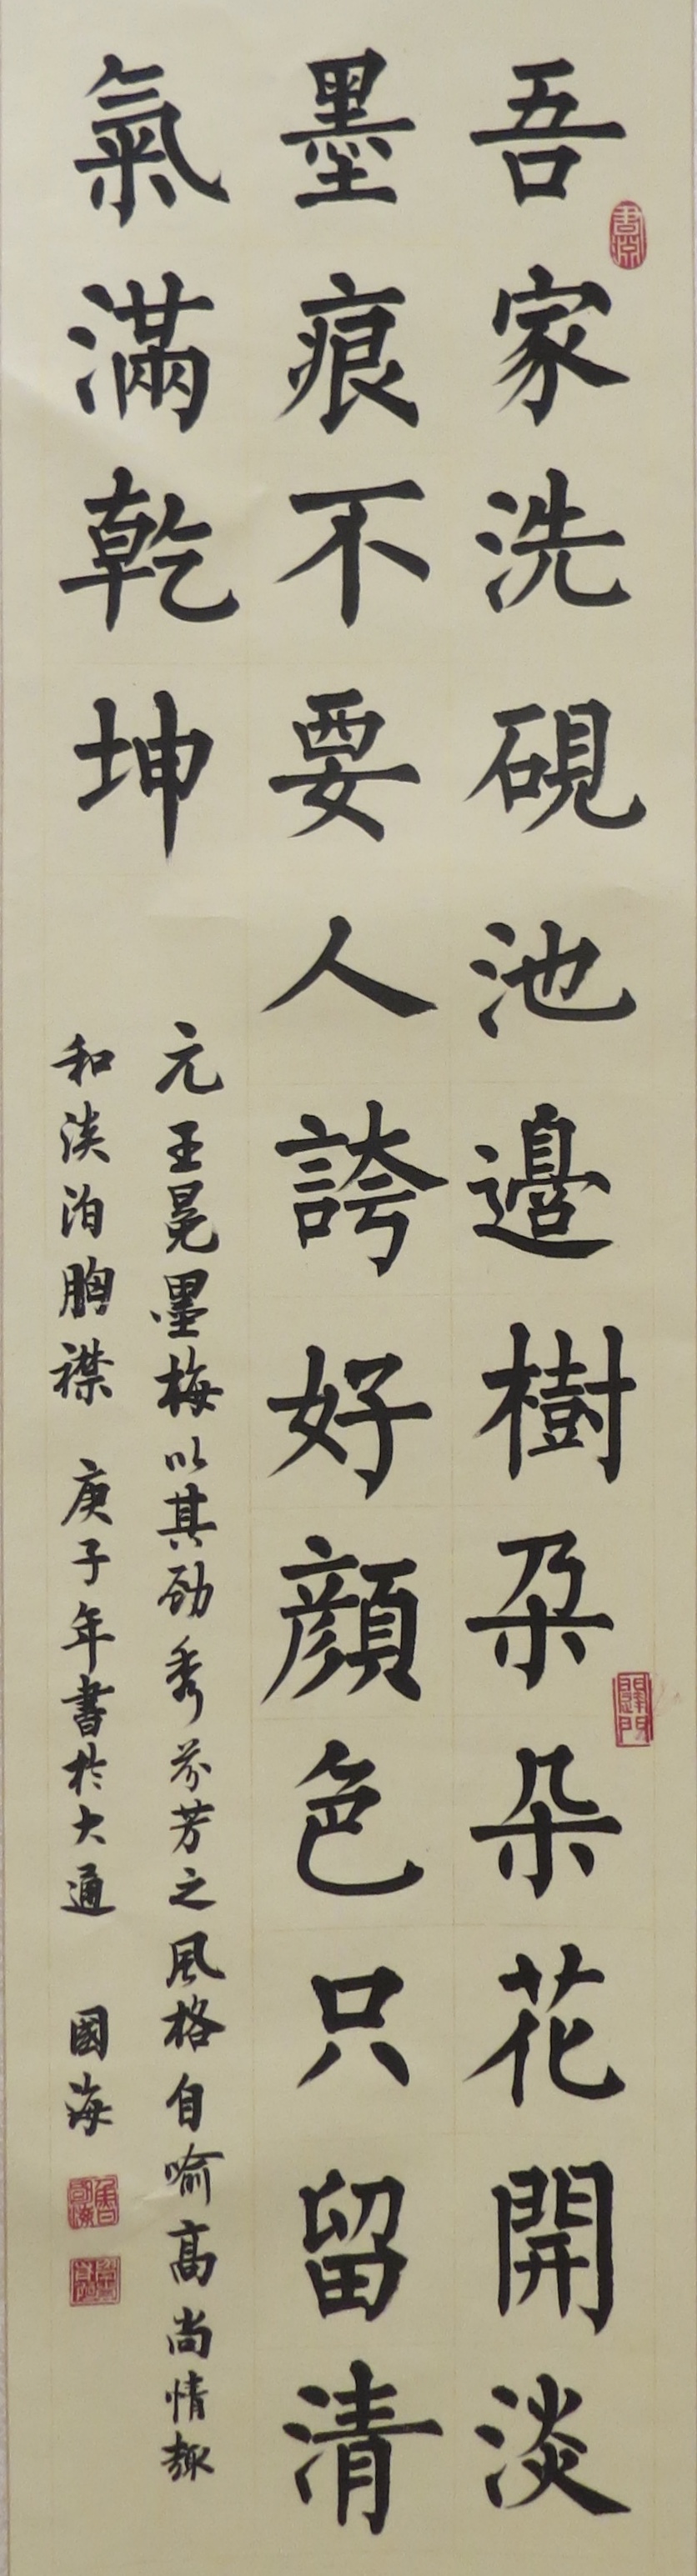 吾家洗硯池邊樹朶朵花開淡
墨痕不要人誇好顏色只留清
氣滿乾坤
元王冕墨梅以其勁秀芬芳之風格自喻高尚情趣
和淡泊胸襟 庚子年書於大通 國海